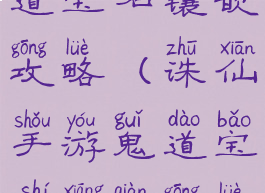 道宝石镶嵌
gōng lüè zhū xiān
攻略（诛仙
shǒu yóu guǐ dào bǎo
手游鬼道宝
shí xiāng qiàn gōng lüè